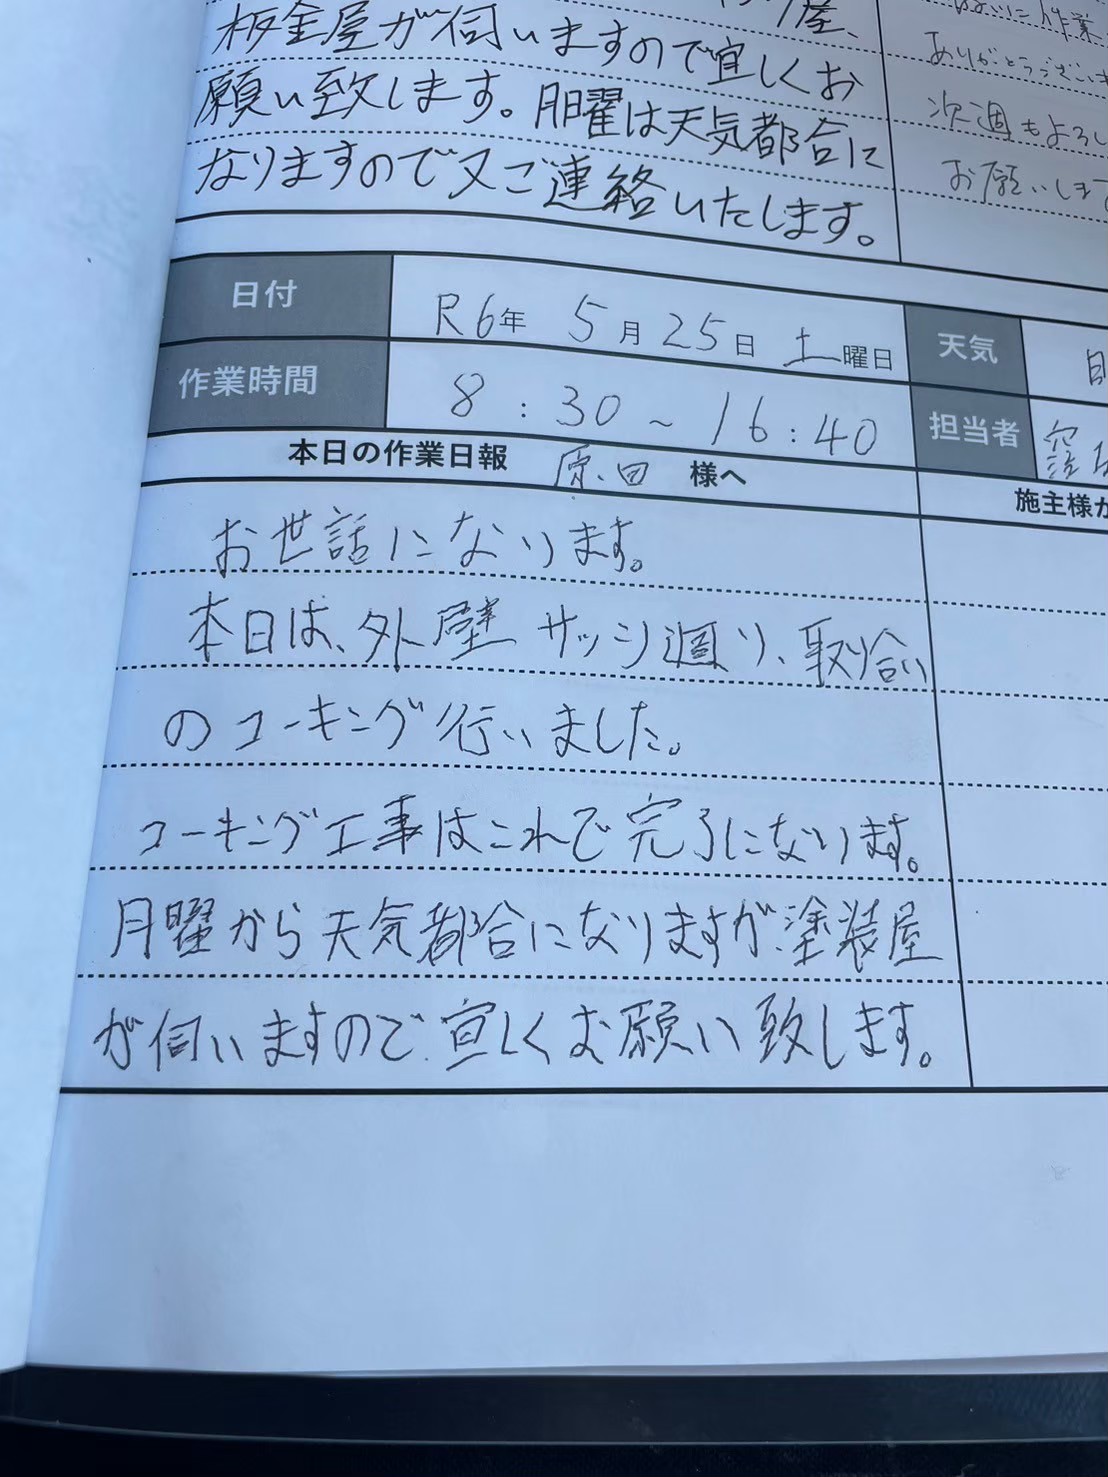 屋、
板金屋が伺いますので宜しくお
願い致します。月曜は天気都合に
なりますので又ご連絡いたします。
作業
ありがとうございま
次週もよろし
お願いします
日付 R6年 5月25日 土曜日 天気
作業時間 8:30~16:40 担当者
本日の作業日報 原田 様へ 施主様か
お世話になります。
本日は、外壁サッシ週り、取り合い
のコーキング行いました。
コーキング工事はこれで完了になります。
月曜から天気都合になりますが、塗装屋
が伺いますので、宜しくお願い致します。